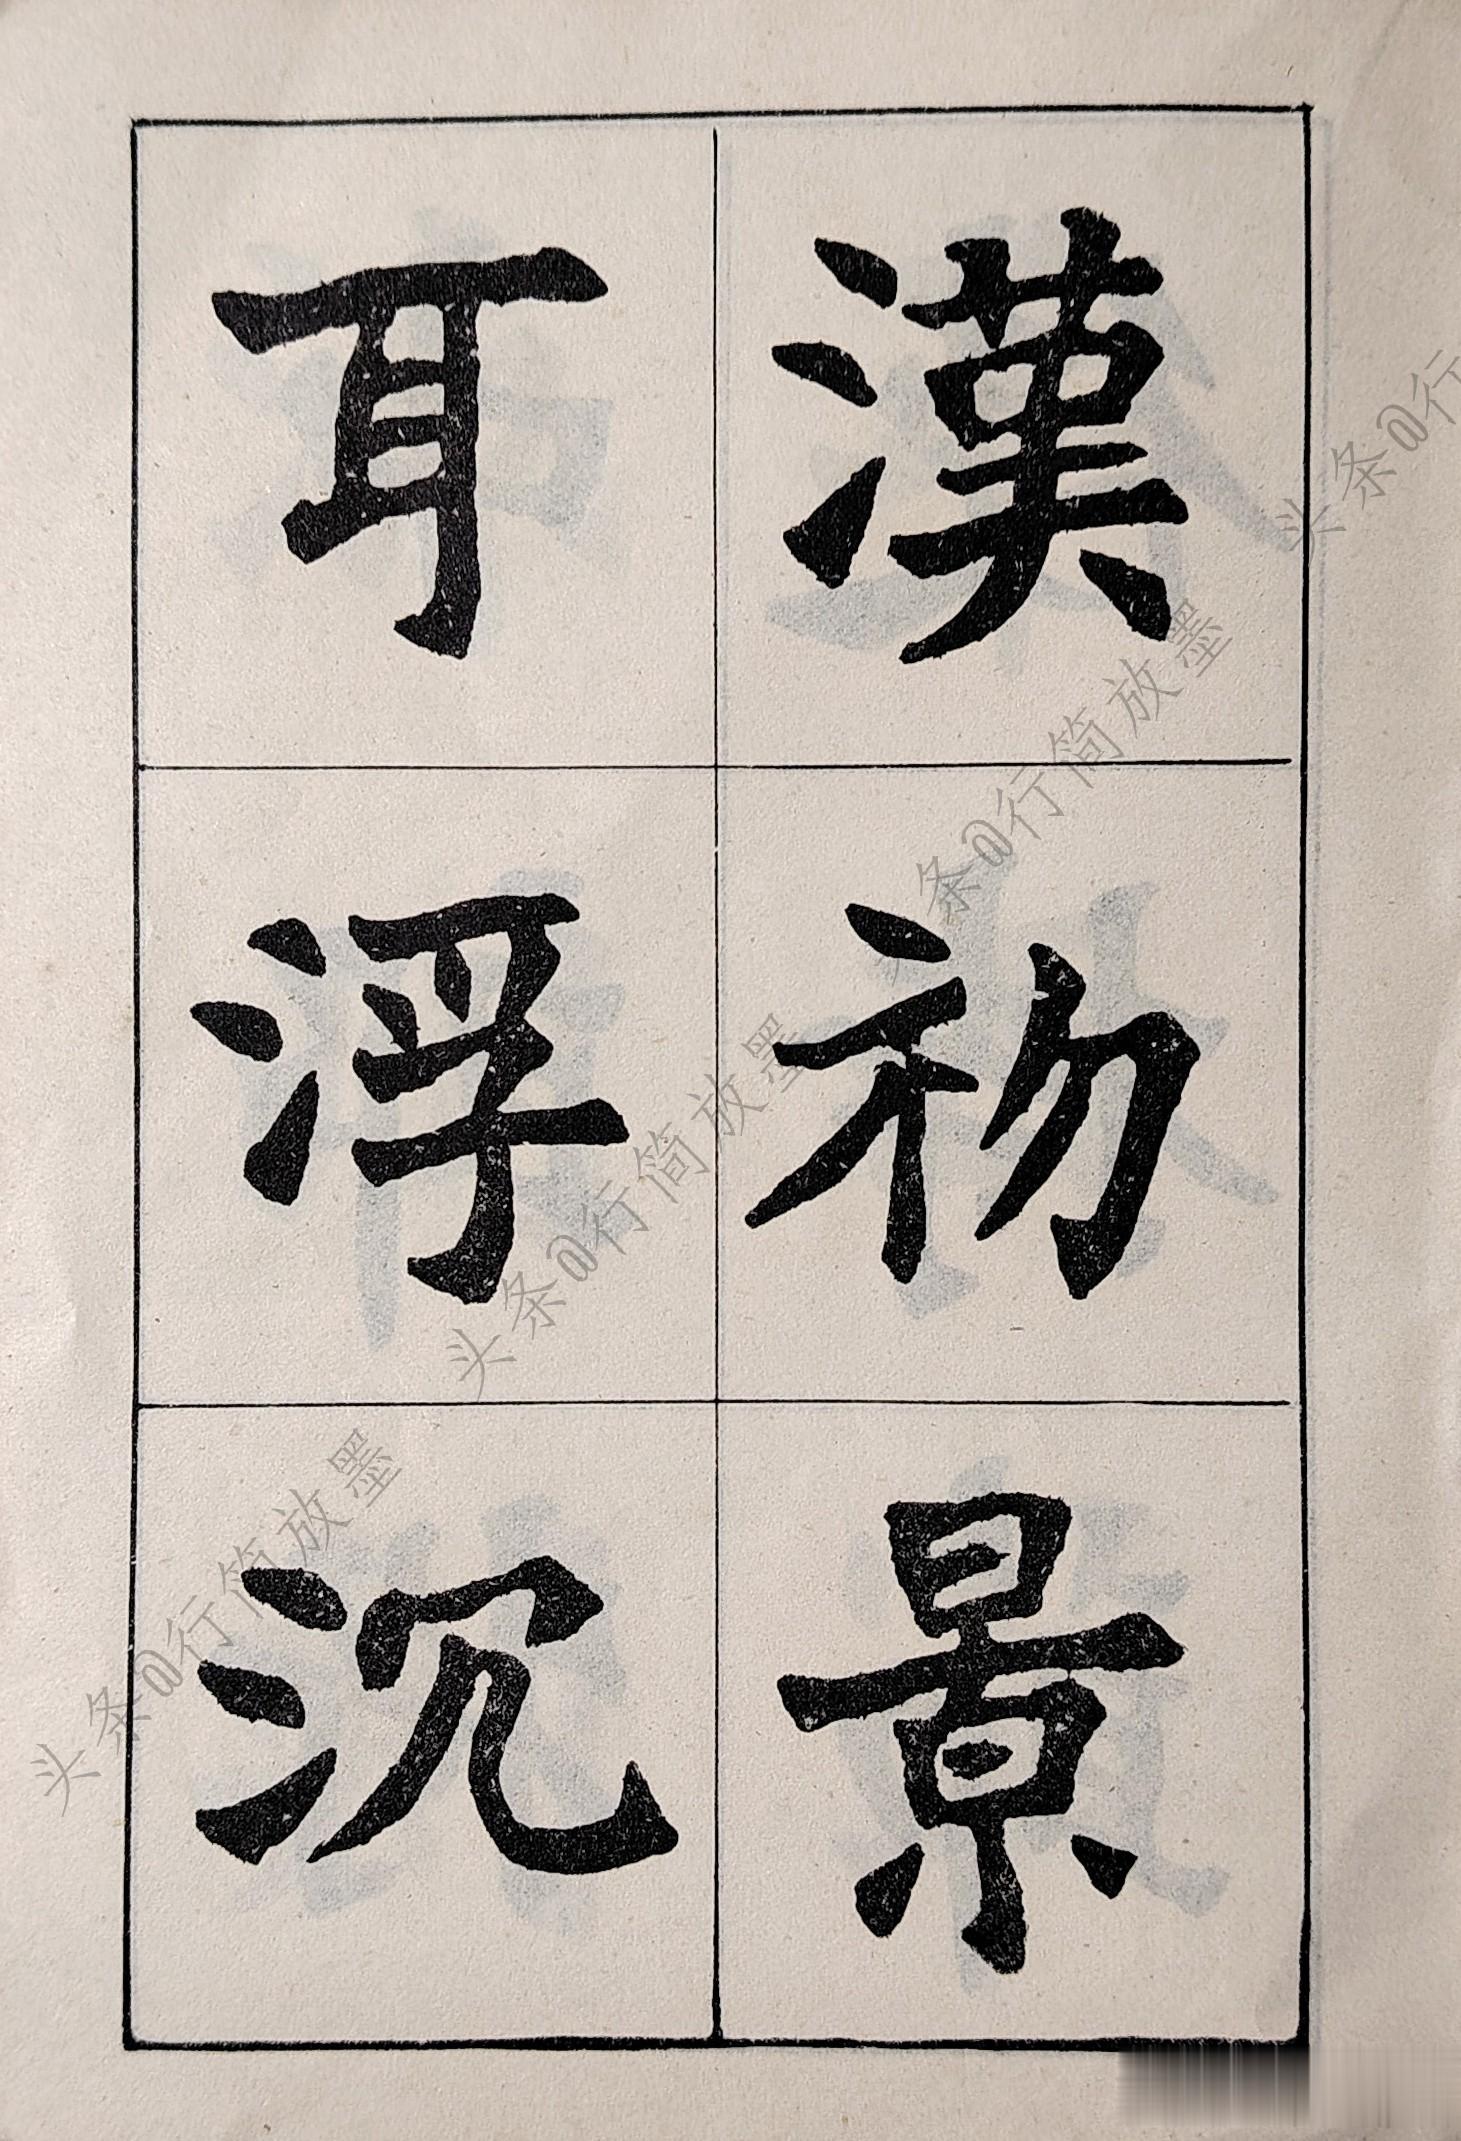 漢初景
耳浮沉
头条@行简放墨
头条@行简放墨
头条@行简放墨
头条@行